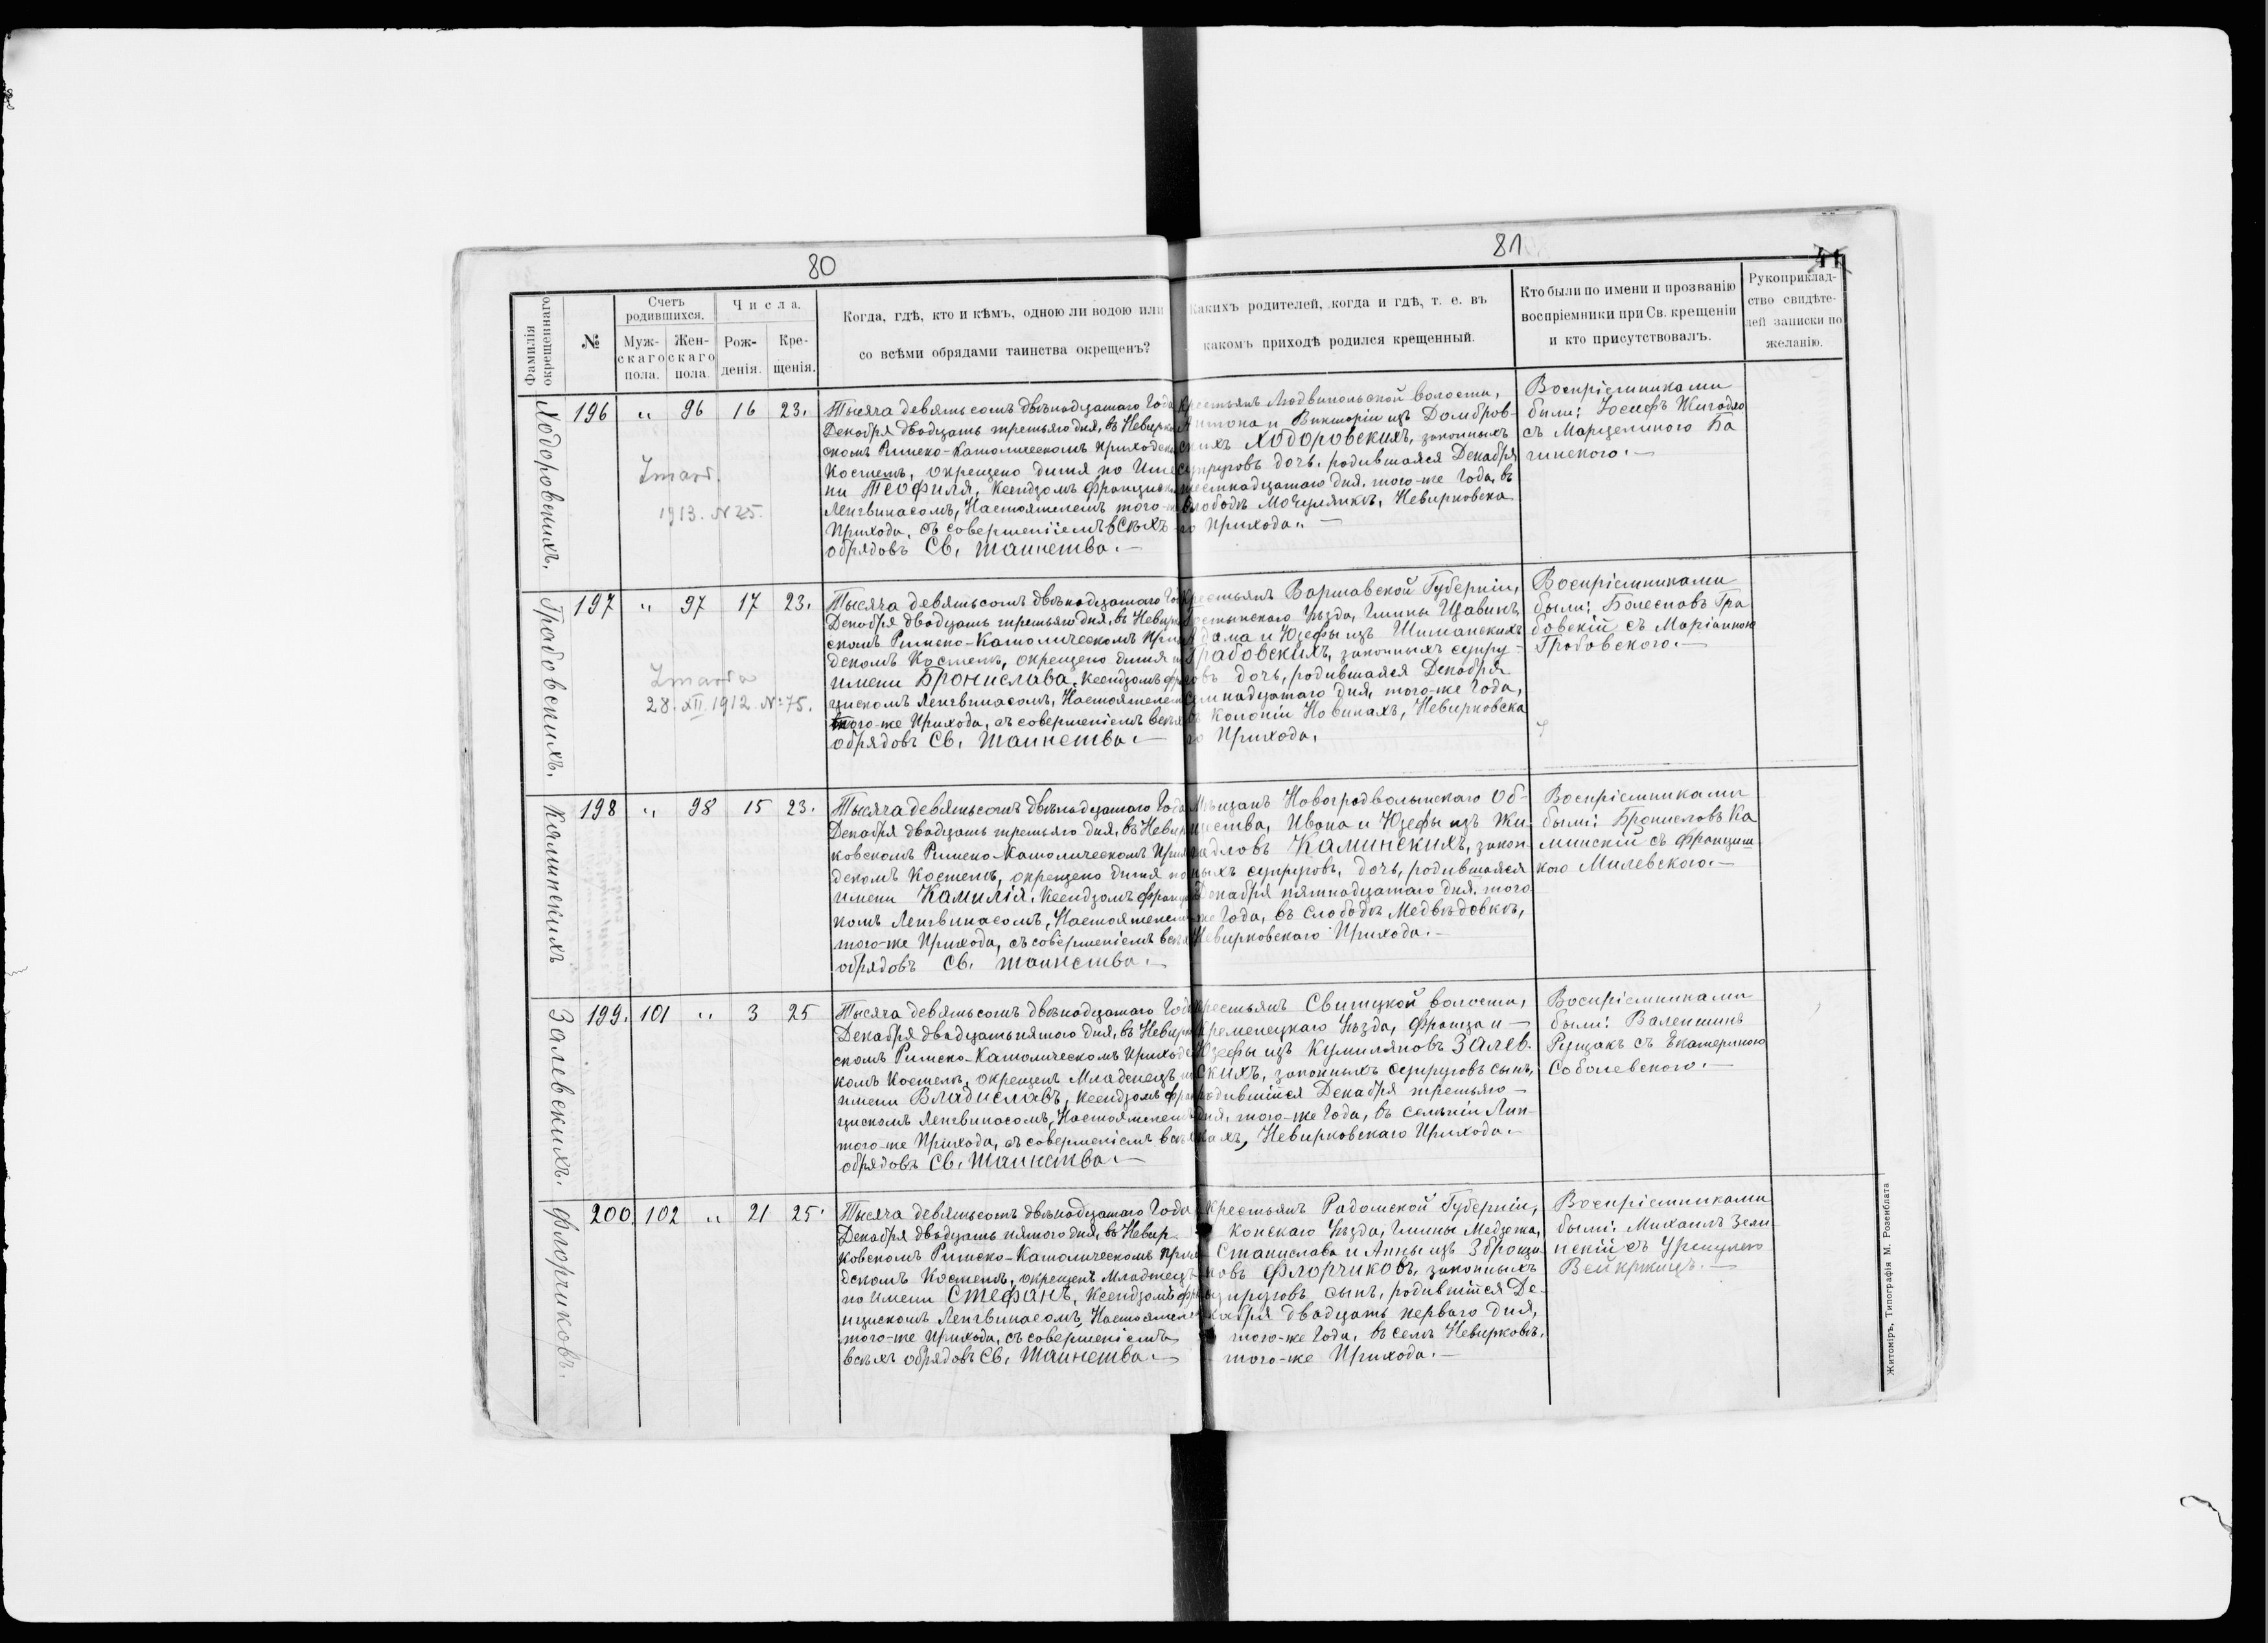 80
81
41
Фамилія окрещеннаго
№
Счетъ родившихся.
Мужскаго пола.
Женскаго пола.
Числа.
Рожденія.
Крещенія.
Когда, гдѣ, кто и кѣмъ, одною ли водою или
со всѣми обрядами таинства окрещенъ?
Какихъ родителей, когда и гдѣ, т. е. въ
какомъ приходѣ родился крещенный.
Кто были по имени и прозванію
воспріемники при Св. крещеніи
и кто присутствовалъ.
Рукоприклад-
ство свидѣте-
лей записки по
желанію.
Ходоровскихъ.
196 „ 96 16 23.
Zmarł.
1913. N 25.
Тысяча девятьсотъ двѣнадцатаго Года
Декабря двадцать третьяго дня, въ Невирков
скомъ Римско-Католическомъ Приходск
Костелѣ, окрещено дитя по Име
ни Теофиля, Ксендзомъ Францискомъ
Ленгвинасомъ, Настоятелемъ того-же
Прихода, съ совершеніемъ всѣхъ
обрядовъ Св. Таинства.—
Крестьянъ Людвипольской волости,
Антона и Викторіи изъ Домбров-
скихъ Ходоровскихъ, законныхъ
супруговъ дочь, родившаяся Декабря
шестнадцатаго дня, того-же Года, въ
Слободѣ Мочулянкѣ, Невирковска
го Прихода.—
Воспріемниками
были: Іосифъ Жигадло
съ Марцелиною Ба
гинскою.—
Грабовскихъ.
197 „ 97 17 23.
Zmarła
28. XII. 1912. №: 75.
Тысяча девятьсотъ двѣнадцатаго Го
Декабря двадцать третьяго дня, въ Невирк
скомъ Римско-Католическомъ Прихо
дскомъ Костелѣ, окрещено дитя п
имени Бронислава, Ксендзомъ Фр
цискомъ Ленгвинасомъ, Настоятелем
того-же Прихода, съ совершеніемъ всѣх
обрядовъ Св. Таинства.—
Крестьянъ Варшавской Губерніи,
Гостынскаго Уѣзда, Гмины Щавинъ,
Адама и Юзефы изъ Шиманскихъ
Грабовскихъ, законныхъ супру-
говъ дочь, родившаяся Декабря
семнадцатаго дня, того-же Года,
въ Колоніи Новинахъ, Невирковска
го Прихода.
Воспріемниками
были: Болеславъ Гра
бовскій съ Маріанною
Грабовскою.—
Каминскихъ
198 „ 98 15 23.
Тысяча девятьсотъ двѣнадцатаго Года
Декабря двадцать третьяго дня, въ Невир
ковскомъ Римско-Католическомъ Прихо
дскомъ Костелѣ, окрещено дитя по
имени Камилія, Ксендзомъ Францис
комъ Ленгвинасомъ, Настоятелемъ
того-же Прихода, съ совершеніемъ всѣх
обрядовъ Св. Таинства.—
Мѣщанъ Новоградволынскаго Об-
щества, Ивана и Юзефы изъ Жи-
гадловъ Каминскихъ, закон-
ныхъ супруговъ, дочь, родившаяся
Декабря пятнадцатаго дня, того
же Года, въ Слободѣ Медвѣдовкѣ,
Невирковскаго Прихода.—
Воспріемниками
были: Брониславъ Ка
минскій съ Францишкою
Милевскою.—
Залевскихъ.
199. 101 „ 3 25
Тысяча девятьсотъ двѣнадцатаго Года
Декабря двадцать пятого дня, въ Невирков
скомъ Римско-Католическомъ Приходс
комъ Костелѣ, окрещенъ Младенецъ по
имени Владиславъ, Ксендзомъ Фран
цискомъ Ленгвинасомъ, Настоятелемъ
того-же Прихода, съ совершеніемъ всѣх
обрядовъ Св. Таинства.—
Крестьянъ Свитицкой волости,
Кременецкаго Уѣзда, Франца и —
Юзефы изъ Кумиляновъ Залев-
скихъ, законныхъ супруговъ сынъ,
родившійся Декабря третьяго —
дня, того-же Года, въ селеніи Лип-
кахъ, Невирковскаго Прихода.—
Воспріемниками
были: Валентинъ
Рущакъ съ Екатериною
Соболевскою.—
Флорчиковъ.
200. 102 „ 21 25.
Тысяча девятьсотъ двѣнадцатаго Года
Декабря двадцать пятого дня, въ Невир-
ковскомъ Римско-Католическомъ Прихо
дскомъ Костелѣ, окрещенъ Младенецъ
по имени Стефанъ, Ксендзомъ Фра
нцискомъ Ленгвинасомъ, Настоятелем
того-же Прихода, съ совершеніемъ
всѣхъ обрядовъ Св. Таинства.—
Крестьянъ Радомской Губерніи,
Конскаго Уѣзда, Гмины Медзежа,
Станислава и Анны изъ Зброща-
ковъ Флорчиковъ, законныхъ
супруговъ сынъ, родившійся Де-
кабря двадцать перваго дня,
того-же Года, въ селѣ Невирковѣ,
того-же Прихода.—
Воспріемниками
были: Михаилъ Зели-
нскій съ Урсулею
Вейкржицъ.—
Житоміръ, Типографія М. Розенблата